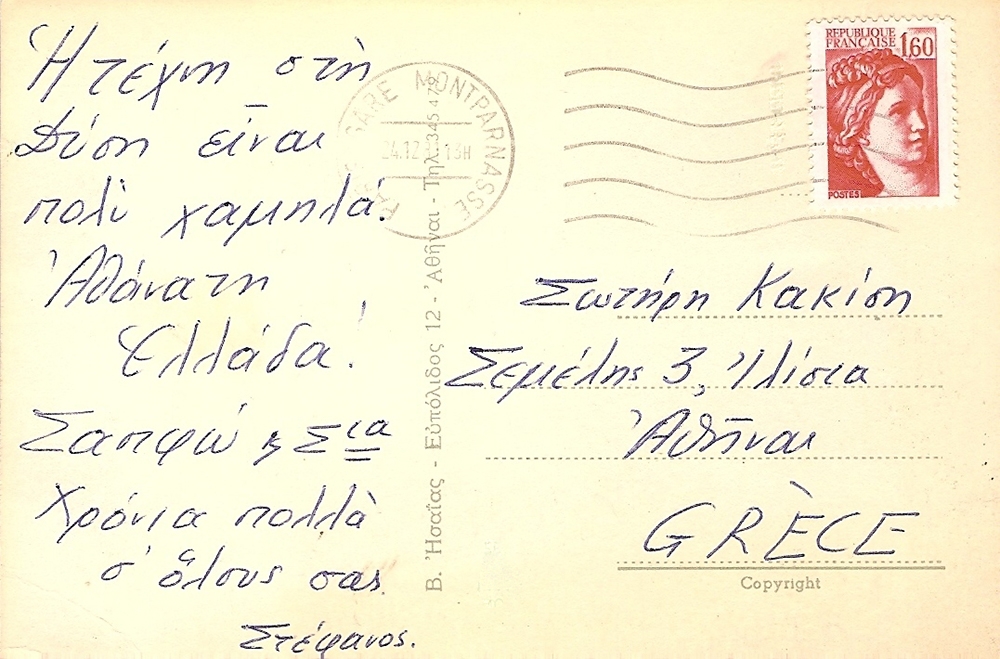 Ἡ τέχνη στὴ
Δύση εἶναι
πολὺ χαμηλά.
Ἀθάνατη
Ἑλλάδα!
Σαπφώ & Σια
Χρόνια πολλὰ
σ' ὅλους σας
Στέφανος.
GARE MONTPARNASSE
24.12
13H
Β. Ἠσαΐας - Εὐπόλιδος 12 - Ἀθῆναι - Τηλ. 3345 479
REPUBLIQUE
FRANÇAISE 1,60
POSTES
Σωτήρη Κακίση
Σεμέλης 3, Ἰλίσια
Ἀθῆναι
GRÈCE
Copyright